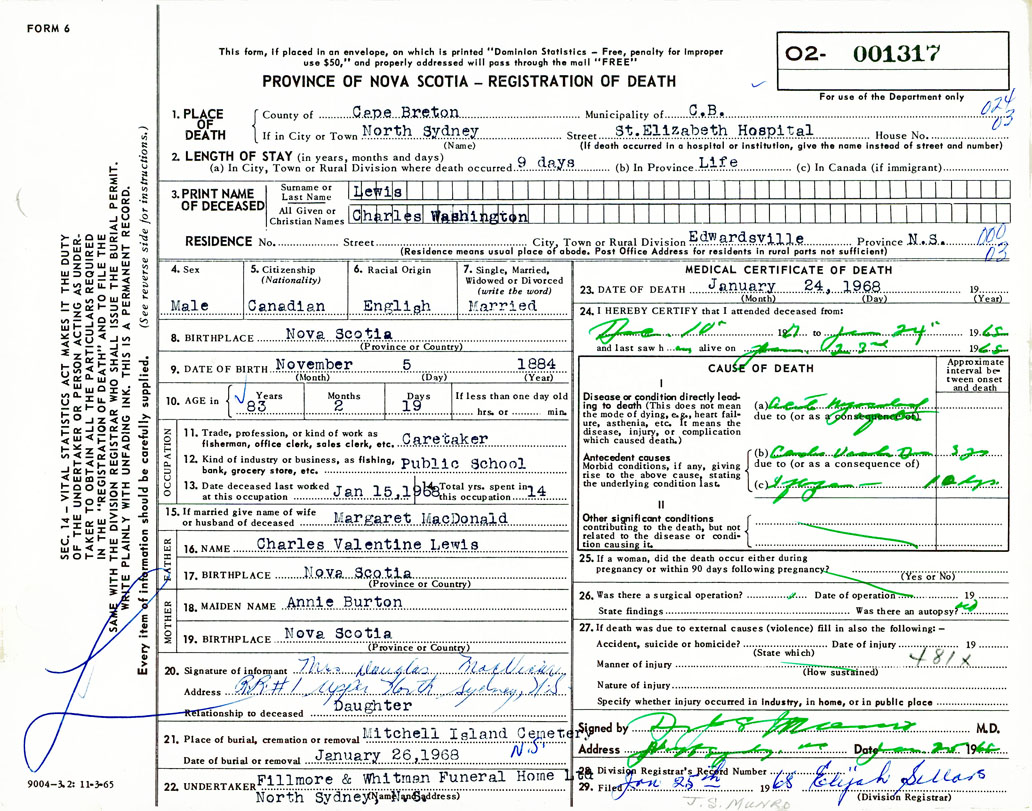 FORM 6
This form, if placed in an envelope, on which is printed "Dominion Statistics – Free, penalty for improper
use $50," and properly addressed will pass through the mail "FREE"
PROVINCE OF NOVA SCOTIA – REGISTRATION OF DEATH
02- 001317
For use of the Department only
024
03
1. PLACE OF DEATH
County of Cape Breton Municipality of C.B.
If in City or Town North Sydney Street St.Elizabeth Hospital House No.
(Name) (If death occurred in a hospital or institution, give the name instead of street and number)
2. LENGTH OF STAY (in years, months and days)
(a) In City, Town or Rural Division where death occurred 9 days (b) In Province Life (c) In Canada (if immigrant)
3. PRINT NAME OF DECEASED
Surname or Last Name Lewis
All Given or Christian Names Charles Washington
RESIDENCE No. Street City, Town or Rural Division Edwardsville Province N.S.
000
03
(Residence means usual place of abode. Post Office Address for residents in rural parts not sufficient)
4. Sex
Male
5. Citizenship
(Nationality)
Canadian
6. Racial Origin
English
7. Single, Married,
Widowed or Divorced
(write the word)
Married
8. BIRTHPLACE Nova Scotia
(Province or Country)
9. DATE OF BIRTH November 5 1884
(Month) (Day) (Year)
10. AGE in Years Months Days If less than one day old
83 2 19 hrs. or min.
OCCUPATION
11. Trade, profession, or kind of work as
fisherman, office clerk, sales clerk, etc. Caretaker
12. Kind of industry or business, as fishing,
bank, grocery store, etc. Public School
13. Date deceased last worked
at this occupation Jan 15,1968
14. Total yrs. spent in
this occupation 14
15. If married give name of wife
or husband of deceased Margaret MacDonald
FATHER
16. NAME Charles Valentine Lewis
17. BIRTHPLACE Nova Scotia
(Province or Country)
MOTHER
18. MAIDEN NAME Annie Burton
19. BIRTHPLACE Nova Scotia
(Province or Country)
20. Signature of informant Mrs. Douglas
Address R.R.#1 Upper North Sydney, N.S
Relationship to deceased Daughter
21. Place of burial, cremation or removal Mitchell Island Cemetery
N.S.
Date of burial or removal January 26,1968
22. UNDERTAKER Fillmore & Whitman Funeral Home Ltd
North Sydney, N.S.
(Name and address)
MEDICAL CERTIFICATE OF DEATH
23. DATE OF DEATH January 24, 1968 19
(Month) (Day) (Year)
24. I HEREBY CERTIFY that I attended deceased from:
to Jan 24" 1968
and last saw h alive on 23rd 1968
CAUSE OF DEATH
Approximate
interval be-
tween onset
and death
I
Disease or condition directly lead-
ing to death (This does not
mean the mode of dying, e.g., heart fail-
ure, asthenia, etc. It means the
disease, injury, or complication
which caused death.)
(a) Acute
due to (or as a consequence of)
Antecedent causes
Morbid conditions, if any, giving
rise to the above cause, stating
the underlying condition last.
(b)
due to (or as a consequence of)
(c)
II
Other significant conditions
contributing to the death, but not
related to the disease or condi-
tion causing it.
25. If a woman, did the death occur either during
pregnancy or within 90 days following pregnancy?
(Yes or No)
26. Was there a surgical operation? Date of operation 19
State findings Was there an autopsy?
27. If death was due to external causes (violence) fill in also the following: –
Accident, suicide or homicide? Date of injury 19
(State which)
481X
Manner of injury
(How sustained)
Nature of injury
Specify whether injury occurred in Industry, in home, or in public place
Signed by M.D.
Address Date Jan 25 1968
28. Division Registrar's Record Number
29. Filed Jan 25th 1968 Elijah Sellars
(Division Registrar)
J.S. MUNRO
SEC. 14 – VITAL STATISTICS ACT MAKES IT THE DUTY
OF THE UNDERTAKER OR PERSON ACTING AS UNDER-
TAKER TO OBTAIN ALL THE PARTICULARS REQUIRED
IN THE "REGISTRATION OF DEATH" AND TO FILE THE
SAME WITH THE DIVISION REGISTRAR WHO SHALL ISSUE THE BURIAL PERMIT.
WRITE PLAINLY WITH UNFADING INK. THIS IS A PERMANENT RECORD.
Every item of information should be carefully supplied. (See reverse side for instructions.)
9004-3.2: 11-3-65